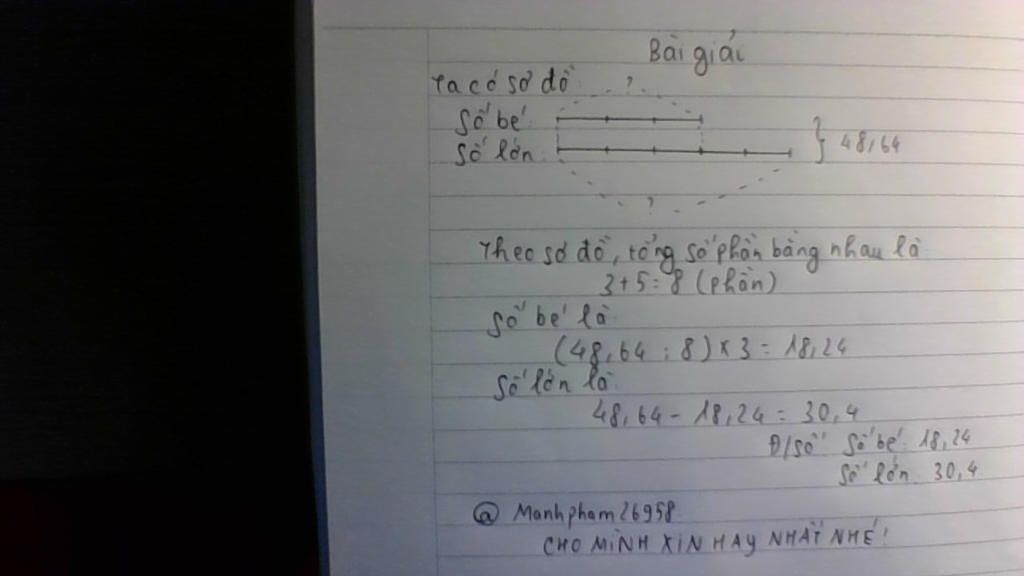 Bài giải
Ta có sơ đồ:
?
Số bé:
Số lớn:
} 48,64
?
Theo sơ đồ, tổng số phần bằng nhau là
3+5=8 (phần)
Số bé là:
(48,64 : 8) x 3 = 18,24
Số lớn là:
48,64 - 18,24 = 30,4
Đ/số: Số bé: 18,24
Số lớn: 30,4
@ Manhpham26958
CHO MÌNH XIN HAY NHẤT NHÉ!